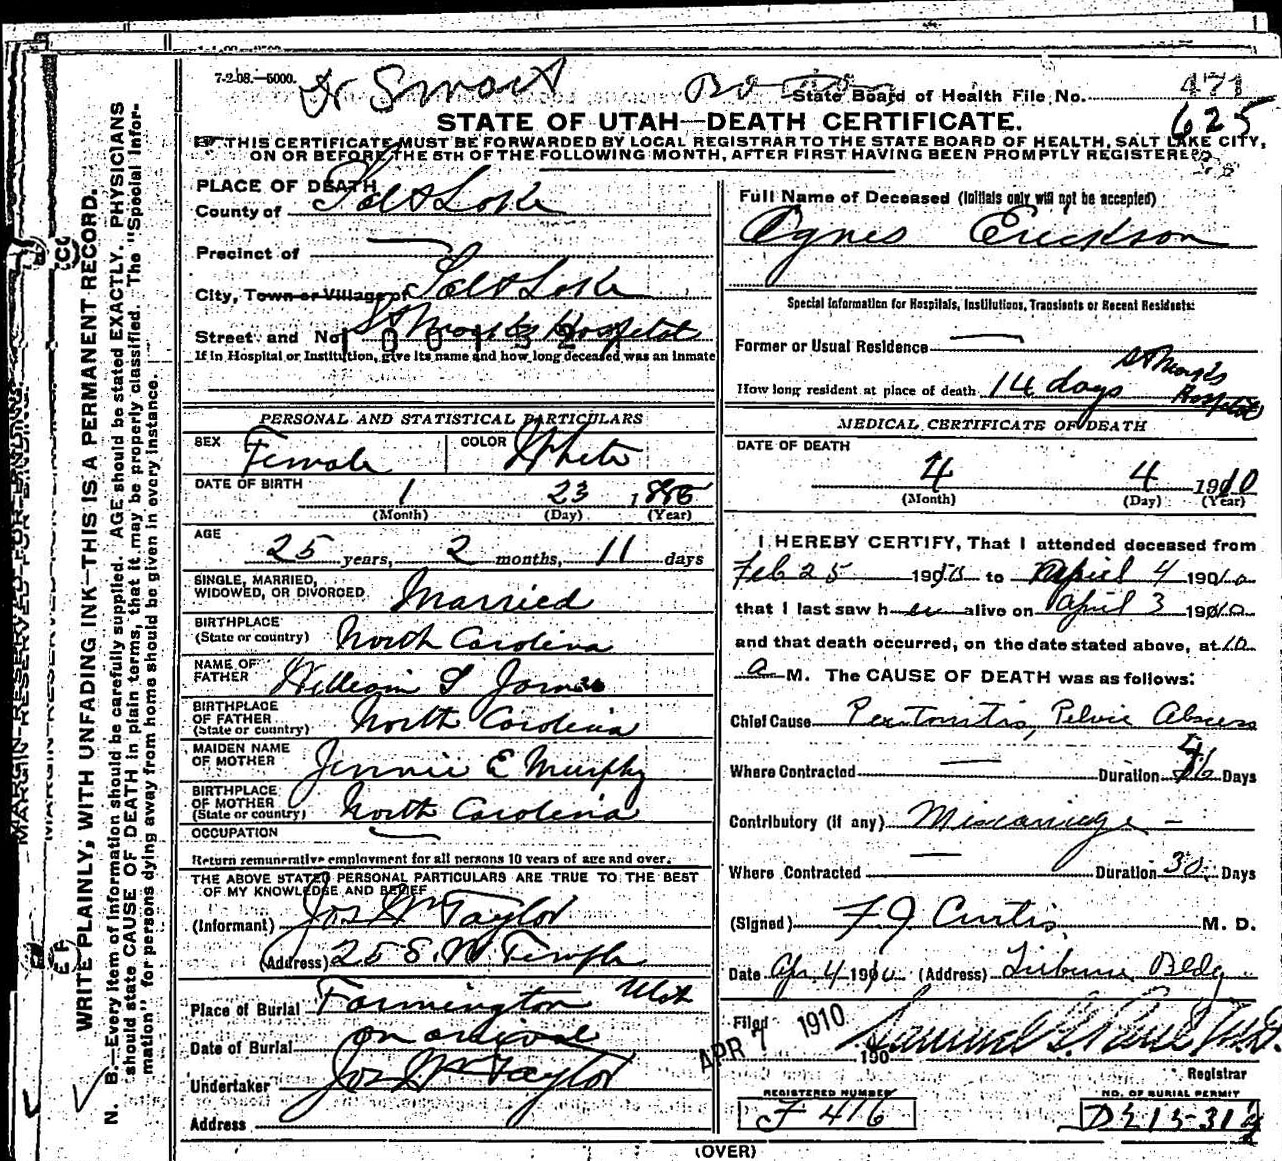 7-2-08.—5000.
State Board of Health File No. 471
625
STATE OF UTAH—DEATH CERTIFICATE.
THIS CERTIFICATE MUST BE FORWARDED BY LOCAL REGISTRAR TO THE STATE BOARD OF HEALTH, SALT LAKE CITY,
ON OR BEFORE THE 5TH OF THE FOLLOWING MONTH, AFTER FIRST HAVING BEEN PROMPTLY REGISTERED.
PLACE OF DEATH
County of Salt Lake
Precinct of
City, Town or Village of Salt Lake
Street and No. St Mark's Hospital
If in Hospital or Institution, give its name and how long deceased was an inmate
PERSONAL AND STATISTICAL PARTICULARS
SEX Female COLOR White
DATE OF BIRTH 1 23 1885
(Month) (Day) (Year)
AGE
25 years, 2 months, 11 days
SINGLE, MARRIED,
WIDOWED, OR DIVORCED Married
BIRTHPLACE
(State or country) North Carolina
NAME OF
FATHER William S
BIRTHPLACE
OF FATHER
(State or country) North Carolina
MAIDEN NAME
OF MOTHER Jennie E Murphy
BIRTHPLACE
OF MOTHER
(State or country) North Carolina
OCCUPATION
Return remunerative employment for all persons 10 years of age and over.
THE ABOVE STATED PERSONAL PARTICULARS ARE TRUE TO THE BEST
OF MY KNOWLEDGE AND BELIEF
(Informant) Jos Wm Taylor
(Address) 25 S. W Temple
Place of Burial Farmington Utah
Date of Burial on arrival
Undertaker Jos Wm Taylor
Address
Full Name of Deceased (Initials only will not be accepted)
Agnes Erickson
Special Information for Hospitals, Institutions, Transients or Recent Residents:
Former or Usual Residence
How long resident at place of death 14 days St Mark's Hospital
MEDICAL CERTIFICATE OF DEATH
DATE OF DEATH
4 4 1910
(Month) (Day) (Year)
I HEREBY CERTIFY, That I attended deceased from
Feb 25 1910 to April 4 1910
that I last saw her alive on April 3 1910
and that death occurred, on the date stated above, at 10
a M. The CAUSE OF DEATH was as follows:
Chief Cause Peritonitis, Pelvic Abscess
Where Contracted Duration Days
Contributory (if any) Miscarriage
Where Contracted Duration 30 Days
(Signed) F. J. Curtis, M. D.
Date Apr 4 1910 (Address) Tribune Bldg
Filed APR 7 1910 190
Registrar
REGISTERED NUMBER
F 416
NO. OF BURIAL PERMIT
(OVER)
MARGIN RESERVED FOR BINDING.
WRITE PLAINLY, WITH UNFADING INK—THIS IS A PERMANENT RECORD.
N. B.—Every item of information should be carefully supplied. AGE should be stated EXACTLY. PHYSICIANS
should state CAUSE OF DEATH in plain terms, that it may be properly classified. The "Special Infor-
mation" for persons dying away from home should be given in every instance.